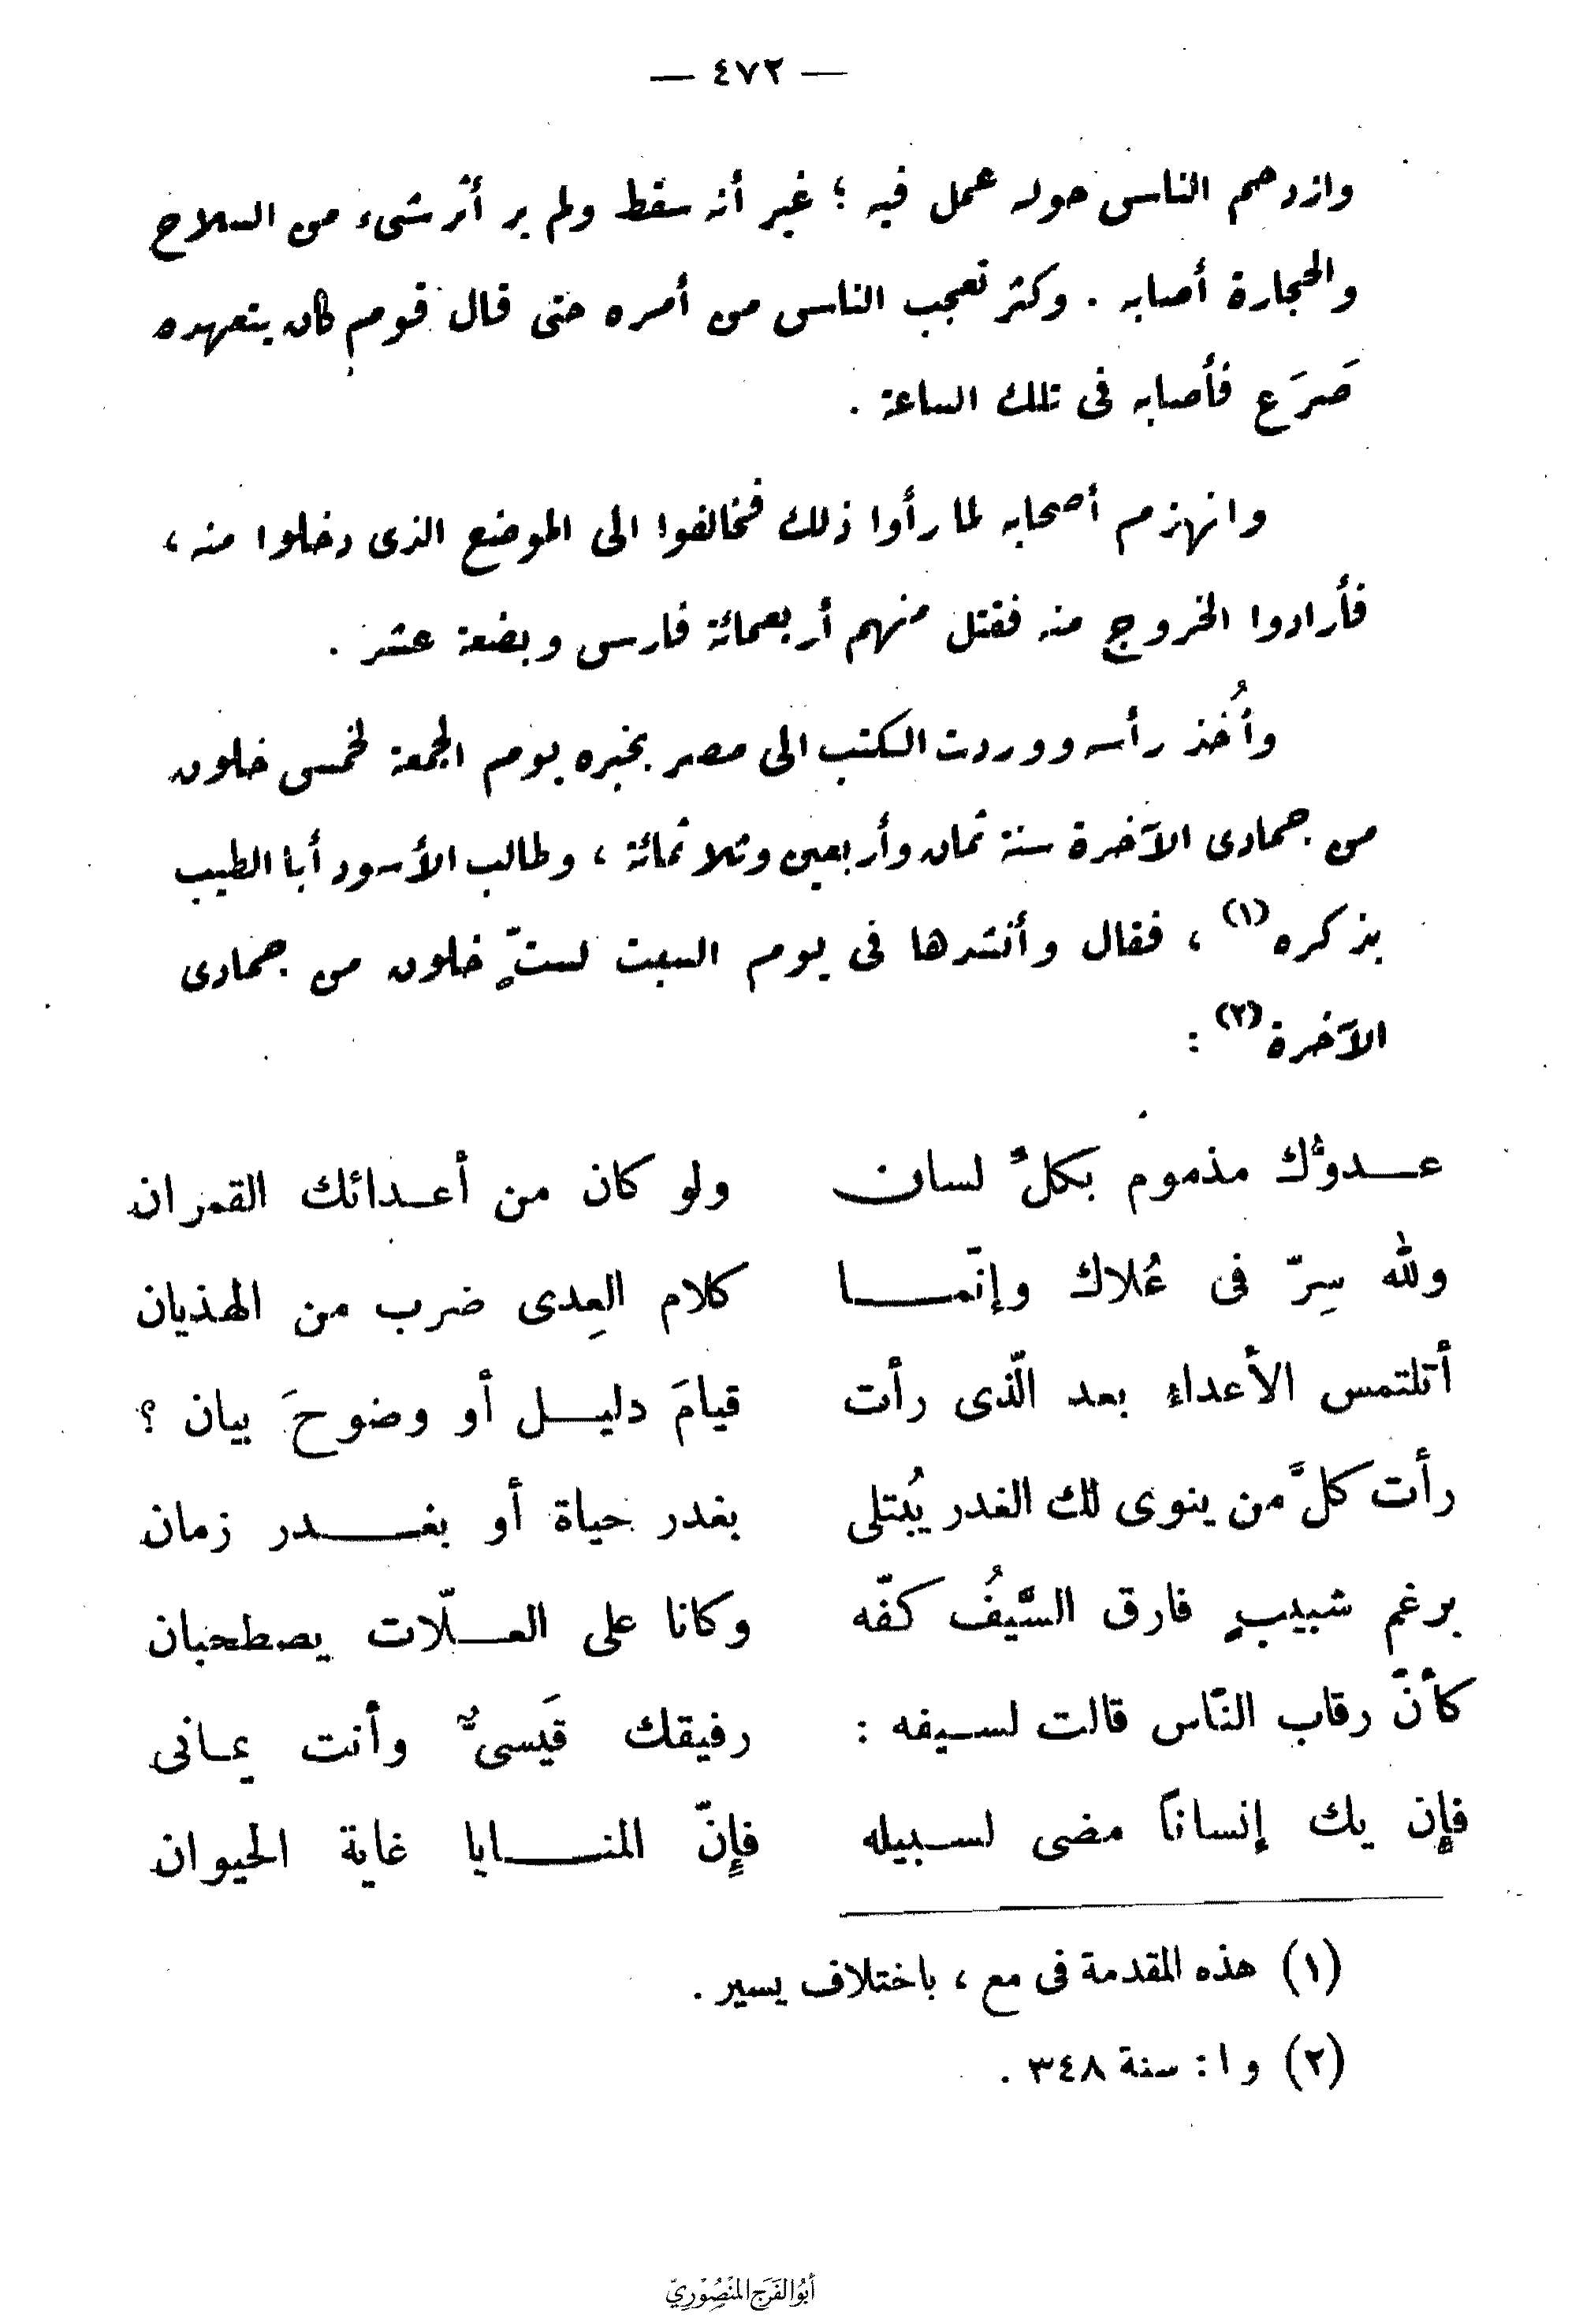 — ٤٧٢ —
وازدحم الناس حوله عمل فيه ؛ غير أنه سقط ولم ير أثر شىء من السلاح
والحجارة أصابه . وكثر تعجب الناس من أمره حتى قال قوم كان يتعهده
صَرَع فأصابه فى تلك الساعة .
وانهزم أصحابه لما رأوا ذلك فخالفوا الى الموضع الذى دخلوا منه ،
فأرادوا الخروج منه فقتل منهم أربعمائة فارس وبضعة عشر .
وأُخذ رأسه ووردت الكتب الى مصر بخبره يوم الجمعة لخمس خلون
من جمادى الآخرة سنة ثمان وأربعين وثلاثمائة ، وطالب الأسود أبا الطيب
بذكره (١) ، فقال وأنشدها فى يوم السبت لستٍّ خلون من جمادى
الآخرة (٢) :
عـــدوُّك مذموم بكلّ لسان ولو كان من أعـدائك القمران
ولله سِرّ فى عُلاك وإنّمـــا كلام العِدى ضرب من الهذيان
أتلتمس الأعداء بعد الّذى رأت قيامَ دليـــل أو وضوحَ بيان ؟
رأت كلَّ من ينوى لك الغدر يُبتلى بغدر حياة أو بغـــدر زمان
برغم شبيبٍ فارق السَّيفُ كفّه وكانا على العـــلّات يصطحبان
كأنّ رقاب النّاس قالت لسيفه : رفيقك قَيسىٌّ وأنت يمـانى
فإن يك إنساناً مضى لسبيله فإنّ المنـــايا غاية الحيوان
(١) هذه المقدمة فى مع ، باختلاف يسير .
(٢) و ا : سنة ٣٤٨ .
أَبُو الفَرَجِ المَنْصُورِيّ